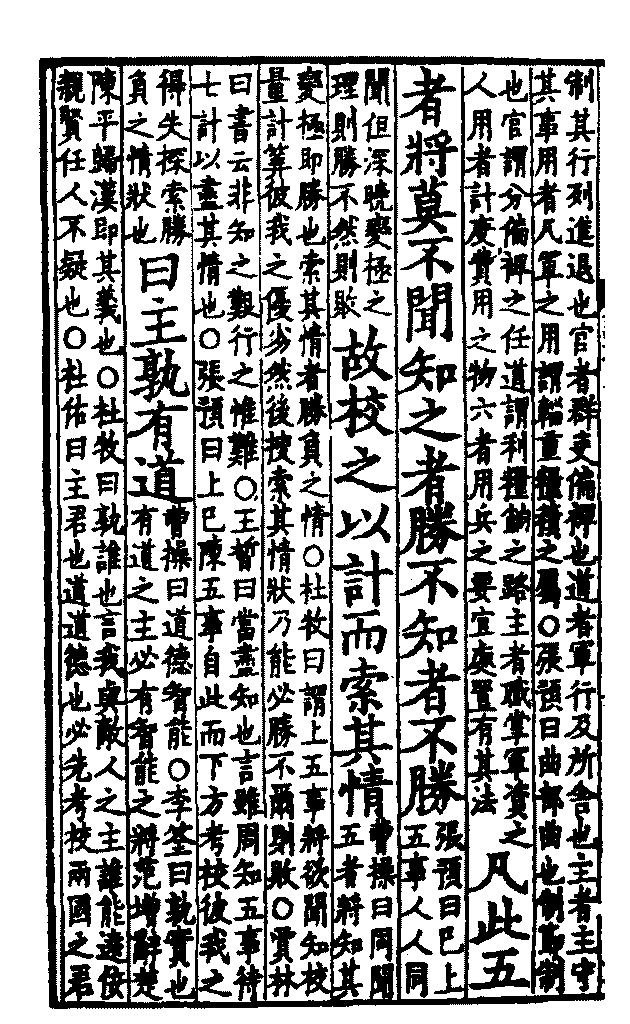 制其行列進退也官者群吏偏裨也道者軍行及所舍也主者主守
其事用者凡軍之用謂輜重糧積之屬〇張預曰曲部曲也制節制
也官謂分偏裨之任道謂利糧餉之路主者職掌軍資之
人用者計度費用之物六者用兵之要宜處置有其法
凡此五
者將莫不聞知之者勝不知者不勝
張預曰已上
五事人人同
聞但深曉變極之
理則勝不然則敗
故校之以計而索其情
曹操曰同聞
五者將知其
變極即勝也索其情者勝負之情〇杜牧曰謂上五事將欲聞知校
量計筭彼我之優劣然後搜索其情狀乃能必勝不爾則敗〇賈林
曰書云非知之艱行之惟難〇王晳曰當盡知也言雖周知五事待
七計以盡其情也〇張預曰上已陳五事自此而下方考校彼我之
得失探索勝
負之情狀也
曰主孰有道
曹操曰道德智能〇李筌曰孰實也
有道之主必有智能之將范增辭楚
陳平歸漢即其義也〇杜牧曰孰誰也言我與敵人之主誰能遠佞
親賢任人不疑也〇杜佑曰主君也道道德也必先考校兩國之君